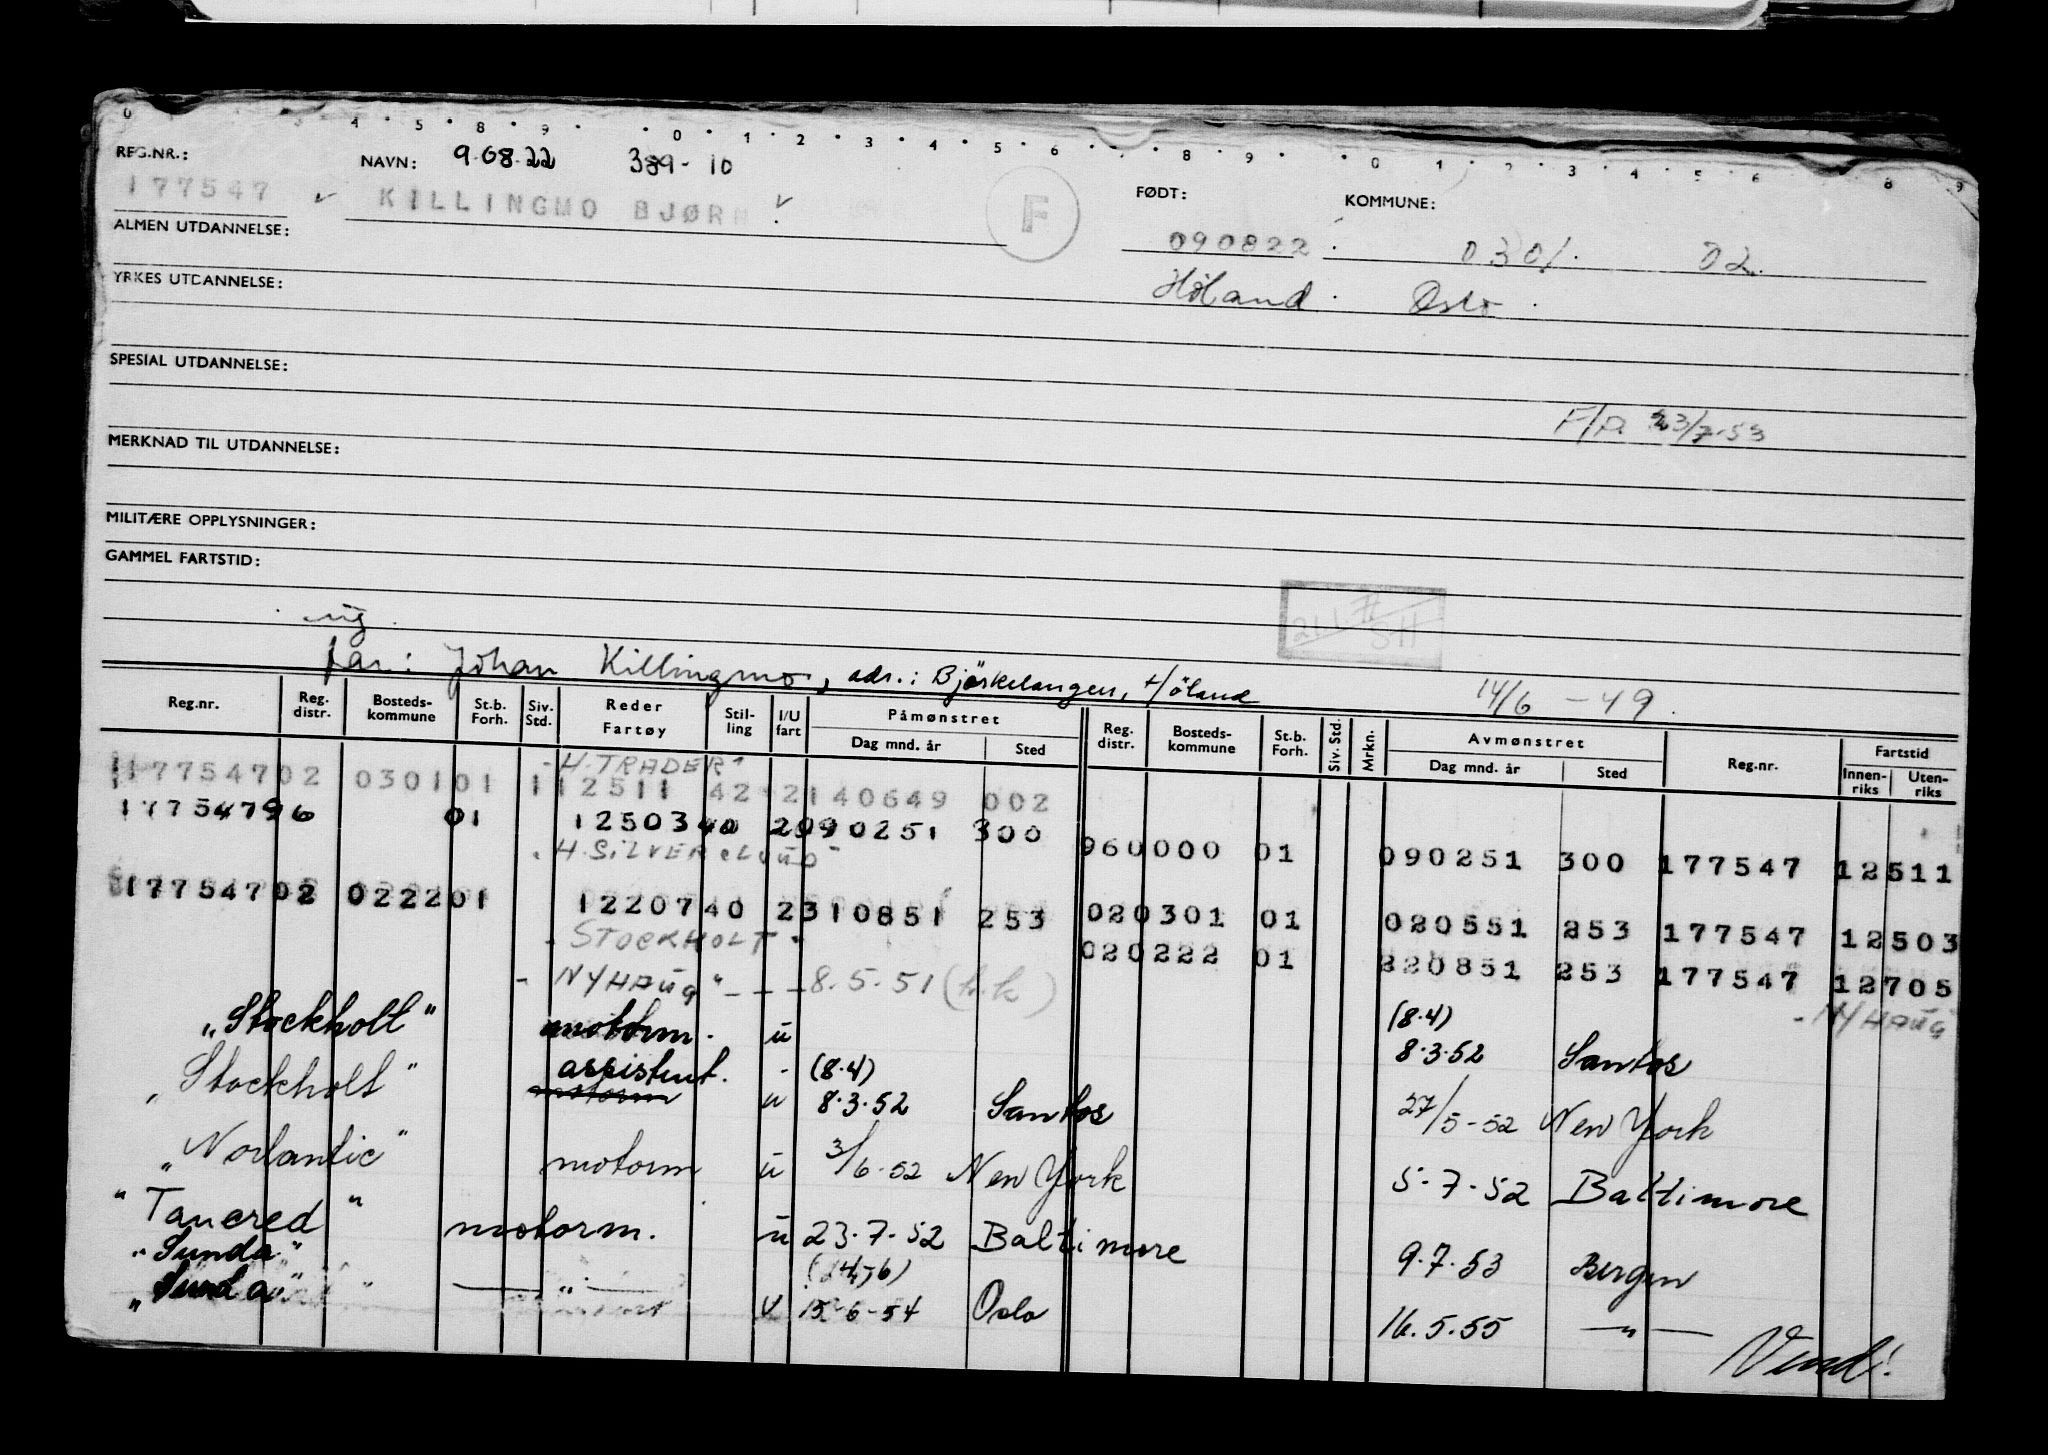 0 4 5 8 9 0 1 2 3 4 5 6 8 9 0 1 2 3 4 5 6 8 9
REG.NR.: NAVN: 9.08.22 389-10 FØDT: KOMMUNE:
177547 KILLINGMO BJØRN F 090822 0301 02
ALMEN UTDANNELSE:
Höland Oslo
YRKES UTDANNELSE:
SPESIAL UTDANNELSE:
F/A 23/7-53
MERKNAD TIL UTDANNELSE:
MILITÆRE OPPLYSNINGER:
GAMMEL FARTSTID:
ug.
far: Johan Killingmo, adr.: Bjørkelangen, Höland 14/6 -49
Reg.nr. Reg. distr. Bosteds-kommune St.b. Forh. Siv. Std. Reder Fartøy Stil-ling I/U fart Påmønstret Dag mnd. år Sted Reg. distr. Bosteds-kommune St.b. Forh. Siv. Std. Mrkn. Avmønstret Dag mnd. år Sted Reg.nr. Fartstid Innen-riks Uten-riks
"H. TRADER"
177547 02 0301 01 1 12511 42 2 140649 002
177547 96 01 12503 40 2 090251 300 96 0000 01 090251 300 177547 12511
"H. SILVERCLOUD"
177547 02 0222 01 12207 40 2 310851 253 02 0301 01 020551 253 177547 12503
"STOCKHOLT" 02 0222 01 220851 253 177547 12705
"NYHAUG" - - - 8.5.51 (h.k) "NYHAUG"
"Stockholt" motorm. u (8.4) 8.3.52 Santos
"Stockholt" assistent. motorm u (8.4) 8.3.52 Santos 27/5-52 New York
"Norlantic" motorm u 3/6-52 New York 5-7-52 Baltimore
"Tancred" motorm. u 23.7-52 Baltimore 9.7.53 Bergen
"Sunda"
"Sunda" — " — u 15-6-54 Oslo 16.5.55 — " —
Vend!